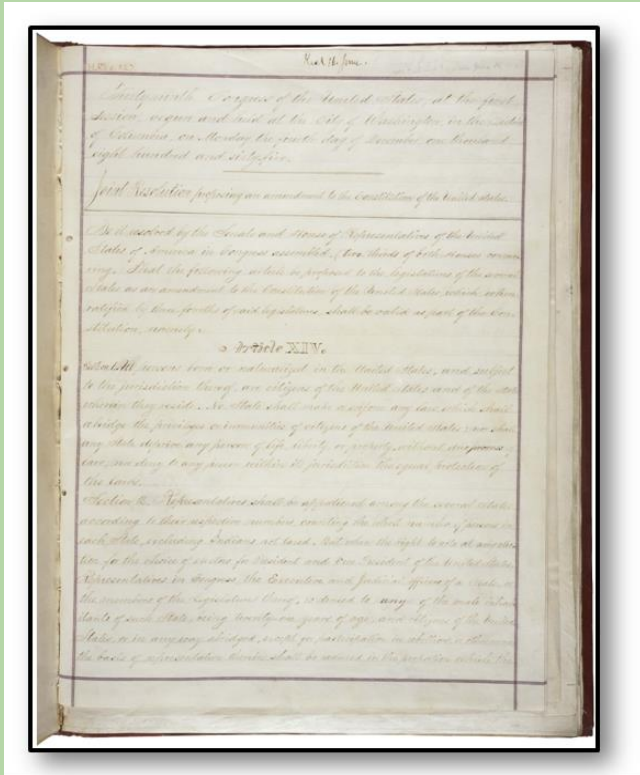 Thirty-ninth Congress of the United States, at the first
session, begun and held at the City of Washington, in the District
of Columbia, on Monday the fourth day of December, one thousand
eight hundred and sixty-five.
Joint Resolution proposing an amendment to the Constitution of the United States.
Be it resolved by the Senate and House of Representatives of the United
States of America in Congress assembled, (two thirds of both Houses concur-
ring,) That the following article be proposed to the legislatures of the several
States as an amendment to the Constitution of the United States, which, when
ratified by three-fourths of said legislatures, shall be valid as part of the Con-
stitution, namely:
Article XIV.
Section 1. All persons born or naturalized in the United States, and subject
to the jurisdiction thereof, are citizens of the United States and of the State
wherein they reside. No State shall make or enforce any law which shall
abridge the privileges or immunities of citizens of the United States; nor shall
any State deprive any person of life, liberty, or property, without due process of
law; nor deny to any person within its jurisdiction the equal protection of
the laws.
Section 2. Representatives shall be apportioned among the several States
according to their respective numbers, counting the whole number of persons in
each State, excluding Indians not taxed. But when the right to vote at any elec-
tion for the choice of electors for President and Vice President of the United States,
Representatives in Congress, the Executive and Judicial officers of a State, or
the members of the Legislature thereof, is denied to any of the male inhabi-
tants of such State, being twenty-one years of age, and citizens of the United
States, or in any way abridged, except for participation in rebellion, or other crime,
the basis of representation therein shall be reduced in the proportion which the